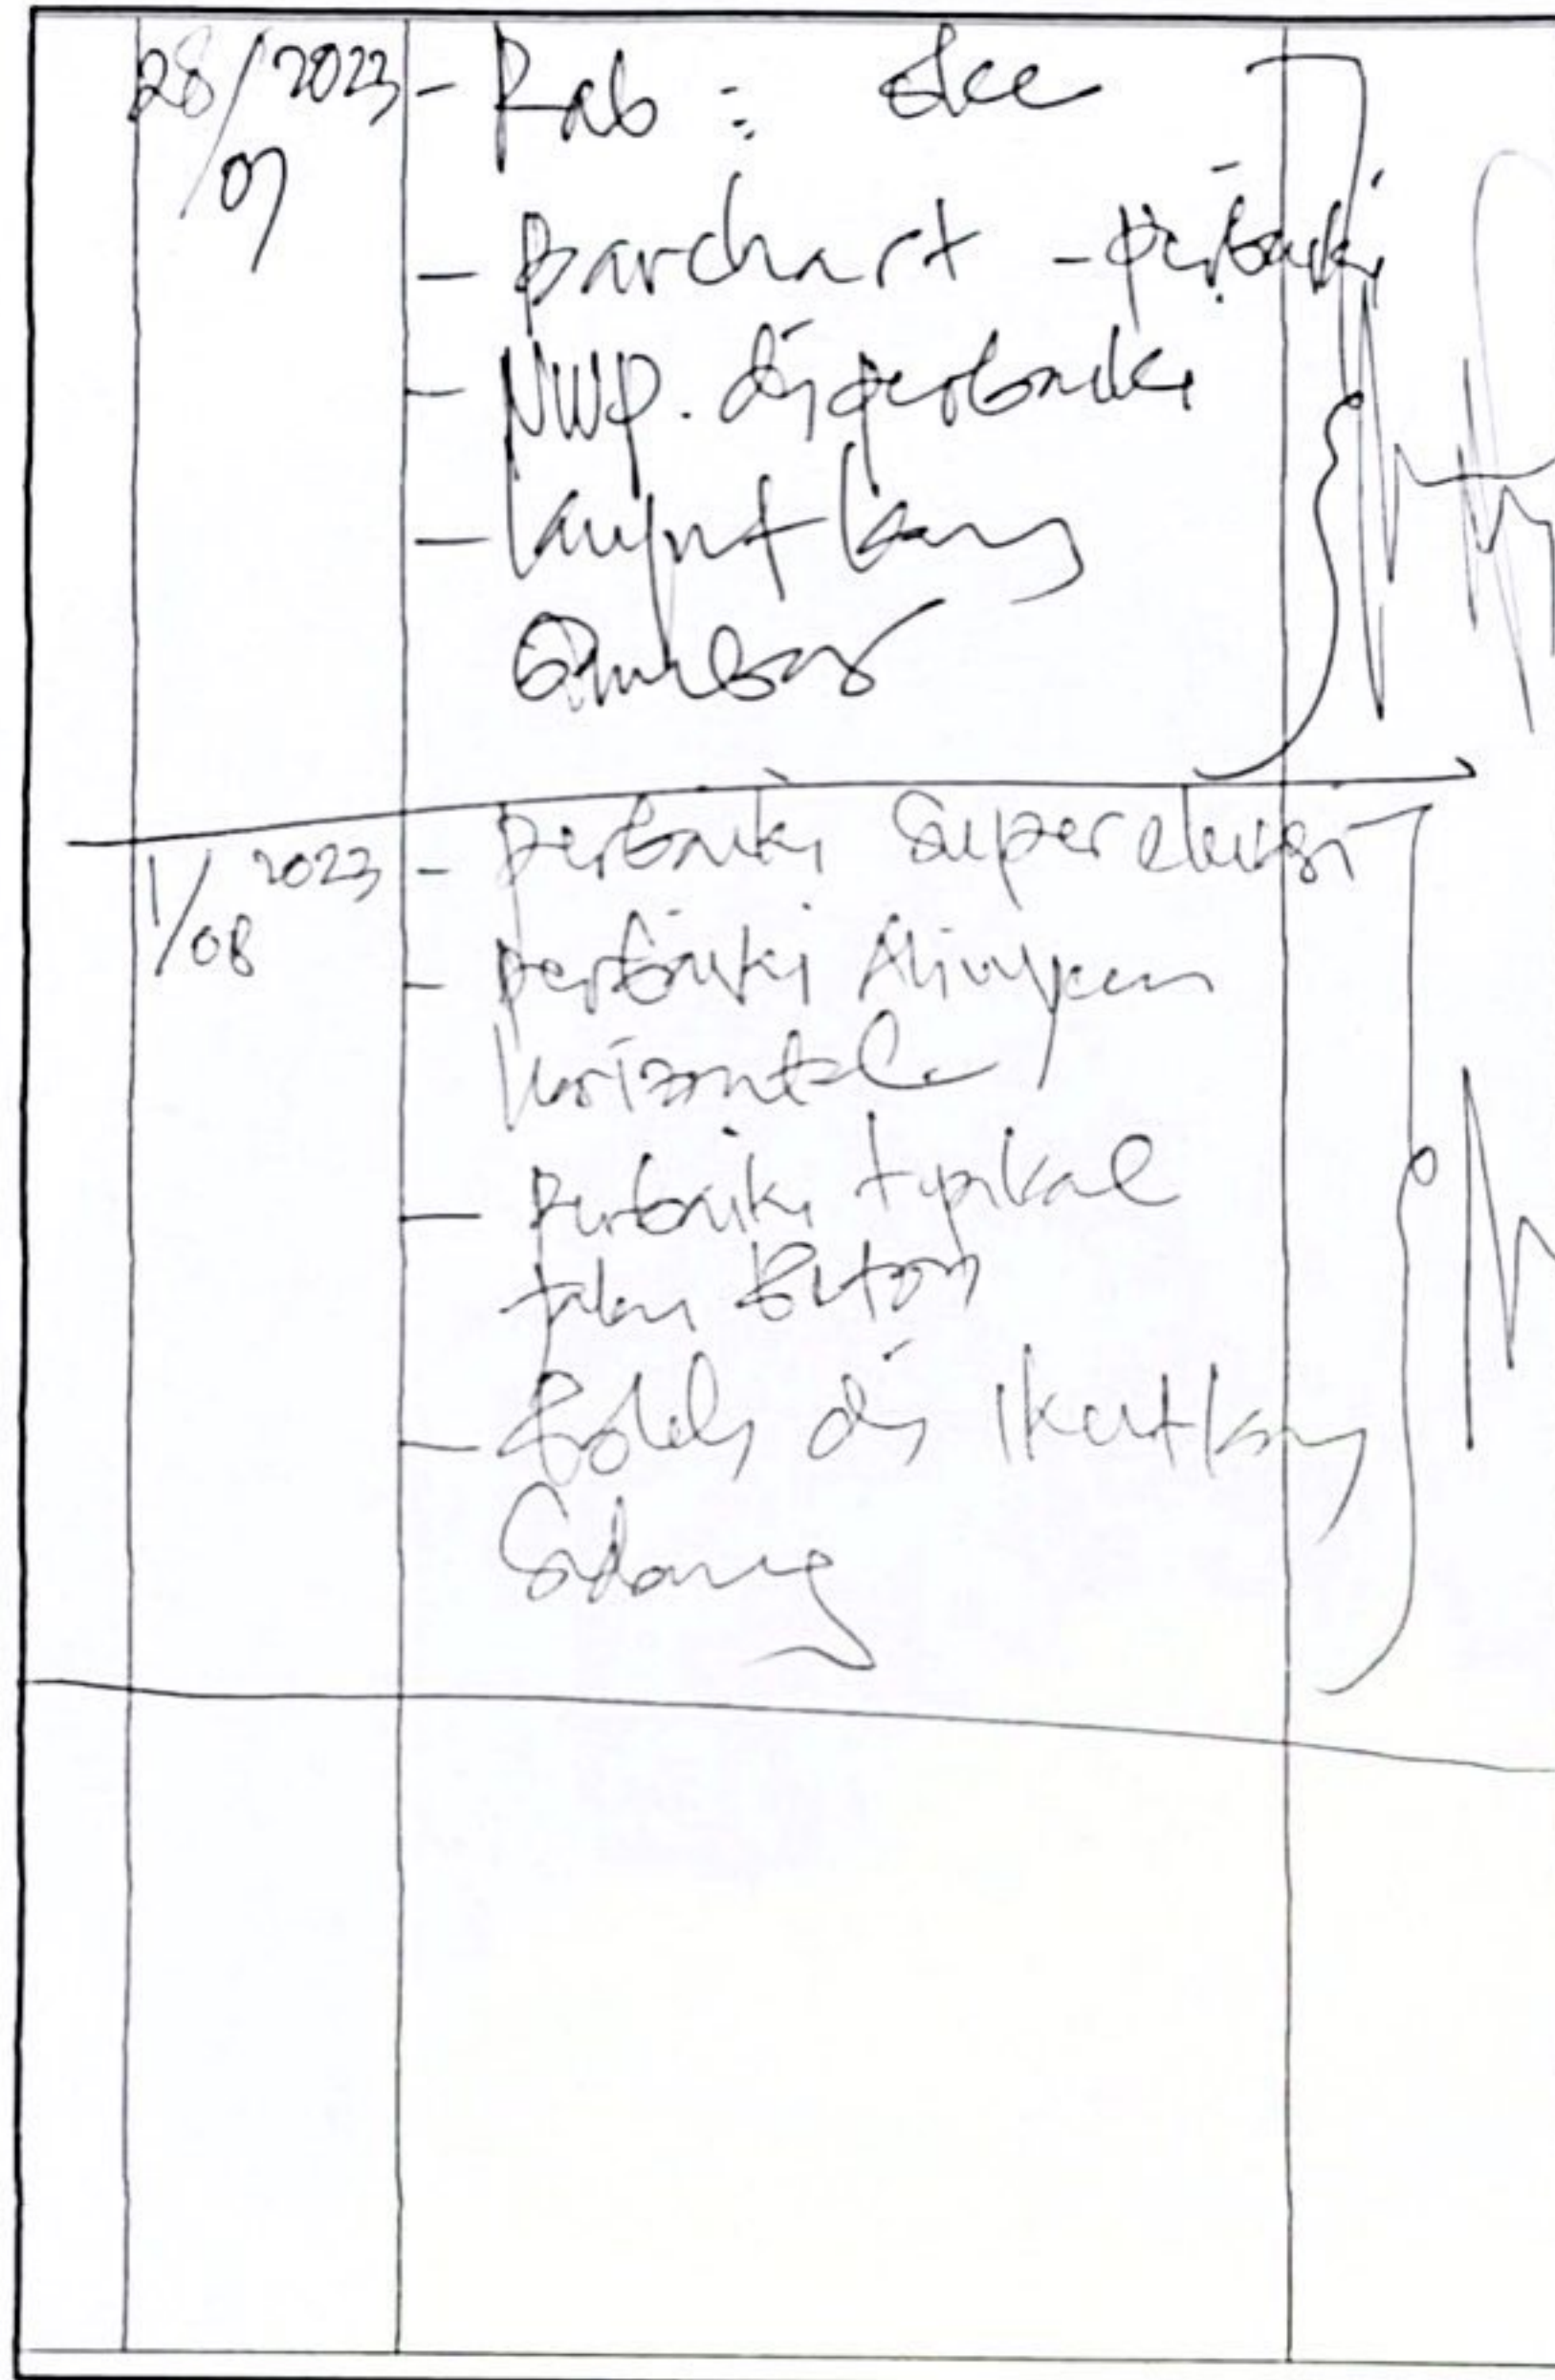 28/07 2023
- Rab : oke
- Barchart - perbaiki
- NWP. diperbaiki
- Lanjutkan
Gambar
1/08 2023
- perbaiki Superelevasi
- perbaiki Alinyemen
Horizontal
- Perbaiki typikal
jalan Beton
- Boleh di ikutkan
Sidang